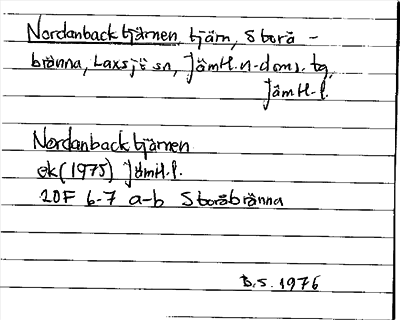 Nordanbacktjärnen, tjärn, Storå-
bränna, Laxsjö sn, Jämtl.n-doms.tg,
Jämtl.l.
Nordanbacktjärnen
ek (1975) Jämtl.l.
20F 6-7 a-b Storåbränna
B.S. 1976